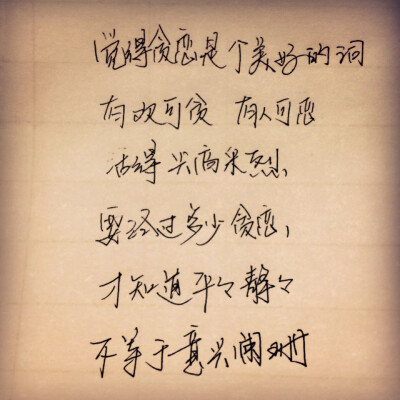 觉得贪恋是个美好的词
有双可贪 有人可恋
活得兴高采烈
要经过多少贪恋，
才知道平々静々
不等于意兴阑珊